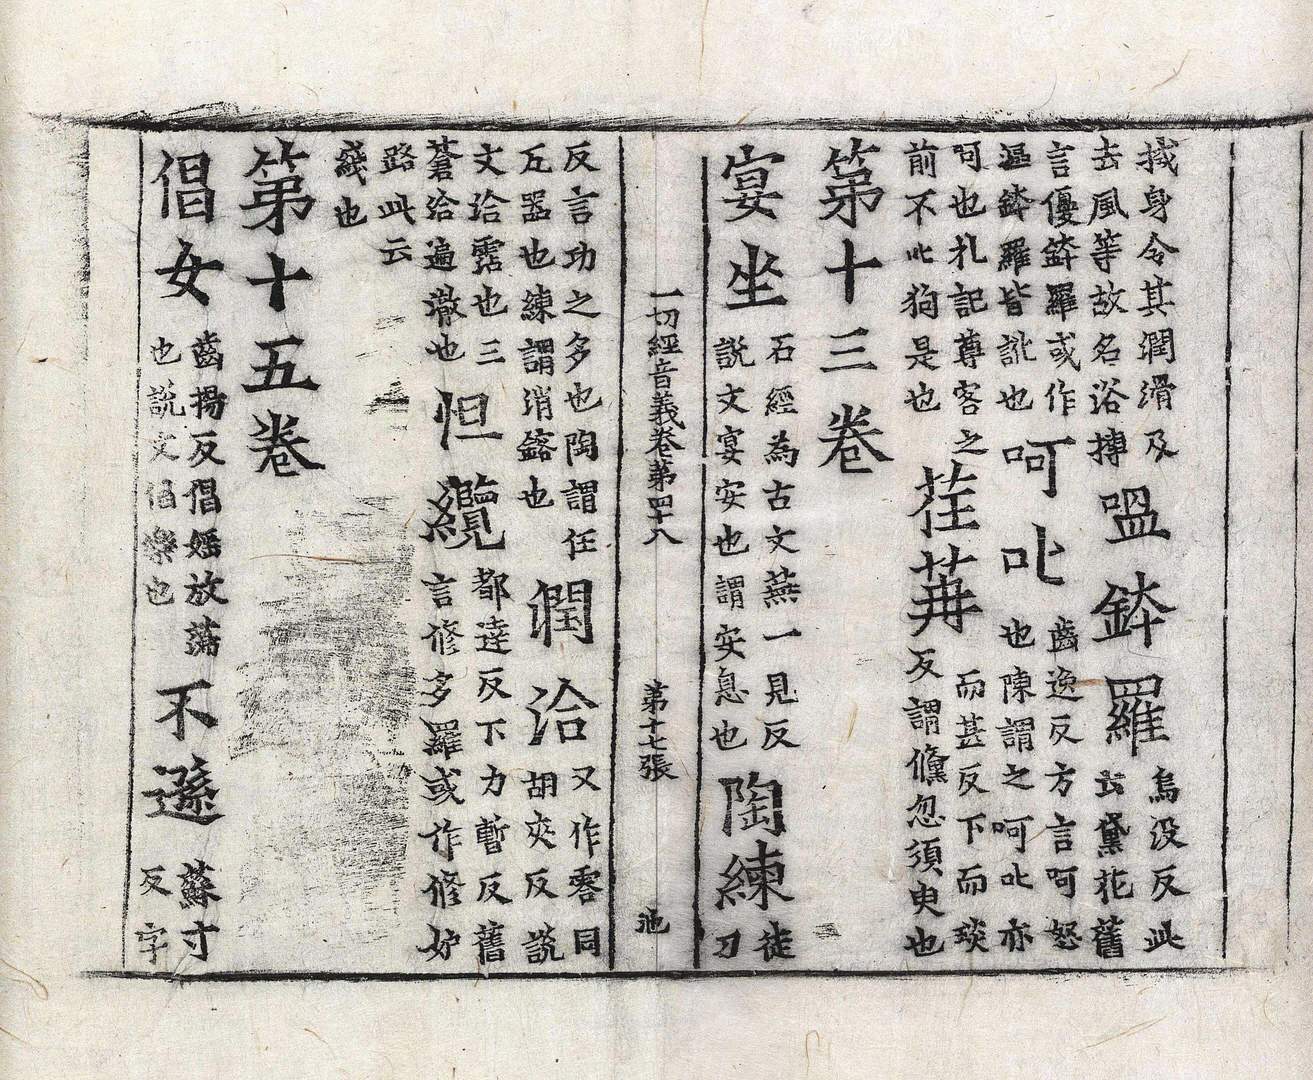 拭身令其潤滑及
去風等故名浴摶
嗢鉢羅
烏没反此
云黛花舊
言優鉢羅或作
漚鉢羅皆訛也
呵叱
齒逸反方言呵怒
也陳謂之呵叱亦
呵也札記尊客之
前不叱狗是也
荏苒
而甚反下而琰
反謂儵忽須臾也
第十三卷
宴坐
石經為古文燕一見反
説文宴安也謂安息也
陶練
徒
刀
一切經音義卷第四十八
第十七張
池
反言功之多也陶謂任
瓦器也練謂消鎔也
潤洽
又作零同
胡夾反説
文洽霑也三
蒼洽遍澈也
怛纜
都達反下力暫反舊
言修多羅或作修妒
路此云
綫也
第十五卷
倡女
齒揚反倡婬放蕩
也説文倡樂也
不遜
蘇寸
反字